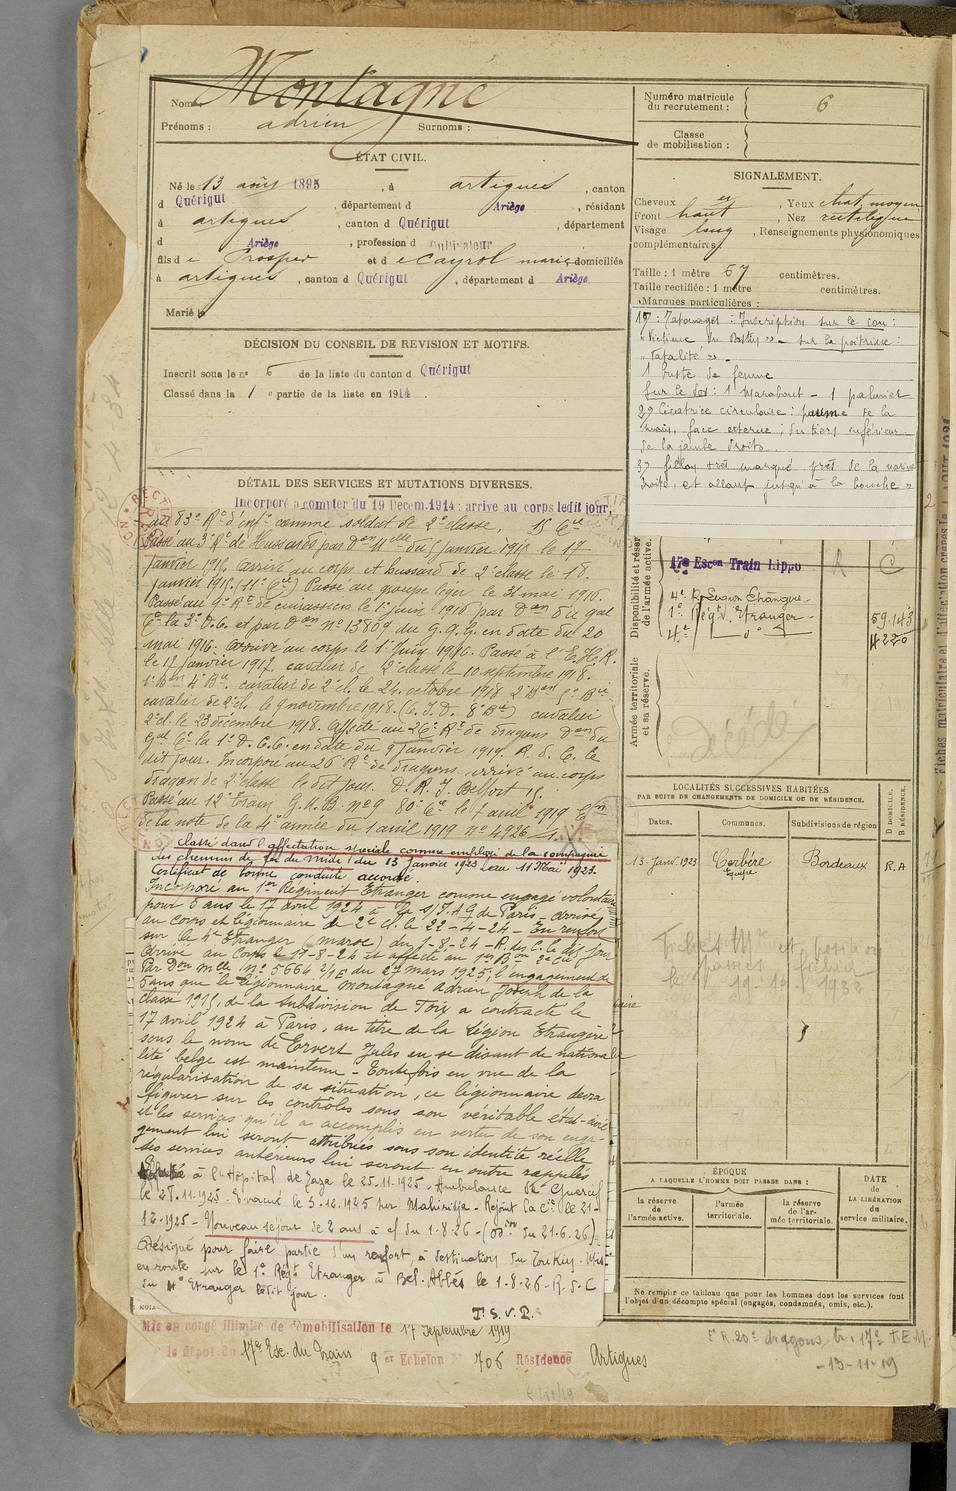 Nom Montagné
Prénoms : adrien Surnoms :
ÉTAT CIVIL.
Né le 13 août 1895, à artigues, canton
d Quérigut, département d Ariège, résidant
à artigues, canton d Quérigut, département
d Ariège, profession d cultivateur
fils de Prosper et de Cayrol marie domiciliés
à artigues, canton d Quérigut, département d Ariège
Marié le
DÉCISION DU CONSEIL DE REVISION ET MOTIFS.
Inscrit sous le n° 6 de la liste du canton d Quérigut
Classé dans la 1e partie de la liste en 1914
DÉTAIL DES SERVICES ET MUTATIONS DIVERSES.
Incorporé à compter du 19 Décem. 1914 : arrivé au corps ledit jour,
au 83e Rt d'infie comme soldat de 2e classe, 15 Cie
Passé au 3e Rt de Hussards par Don 11elle du 5 janvier 1915 le 17
janvier 1915. arrivé au corps et hussard de 2e classe le 18
janvier 1915. (11e Cie) Passé au groupe léger le 31 mai 1916.
Passé au 9e Rt de cuirassiers le 1er juin 1916 par Don du gal
Ct la 3e D.C. et par Don n° 13869 du G.Q.G. en date du 20
mai 1916. arrivé au corps le 1er juin 1916. Passé à l'E.H.R.
le 17 janvier 1917. cavalier de 2e classe le 10 septembre 1918.
1er Bon 4e Bie. cavalier de 2e cl. le 24 octobre 1918 2e Bon 5e Bie
cavalier de 2e cl. le 9 novembre 1918. (C.I.D. 8e Bie) cavalier
2e cl. le 23 décembre 1918. affecté au 26e Rt de dragons Don du
gal Ct la 1e D.C.C. en date du 9 janvier 1919. R. d. C. le
dit jour. Incorporé au 26e Rt de dragons arrivé au corps
dragon de 2e classe le dit jour. D. R. I. Belfort
Passé au 12e Train G.M.B. n° 9 80e Cie le 1 avril 1919 Con
de la note de la 4e armée du 1 avril 1919 n° 4926
Classé dans l'affectation spéciale comme employé de la compagnie
des chemins de fer du midi du 13 Janvier 1923 au 11 Mai 1923.
Certificat de bonne conduite accordé.
Incorporé au 1er Régiment Etranger comme engagé volontaire
pour 5 ans le 17 avril 1924 à la S/I.A.G de Paris - arrivé
au corps et légionnaire de 2e cl. le 22-4-24 - En renfort
sur le 4e Etranger (maroc) du 1-8-24 - R. des C. le dit jour
Arrivé au Corps le 11-8-24 et affecté au 1er Bon 2e Cie
Par Don mlle N° 5664 2/1E du 27 mars 1925, l'engagement de
5 ans que le légionnaire Montagné Adrien Joseph de la
classe 1915, de la subdivision de Foix a contracté le
17 avril 1924 à Paris, au titre de la Légion Etrangère
sous le nom de Ervert Jules en se disant de nationa
lité belge est maintenu - Toutefois en vue de la
régularisation de sa situation, ce légionnaire devra
figurer sur les contrôles sous son véritable état-civil
et les services qu'il a accomplis en vertu de son enga-
gement lui seront attribués sous son identité réelle
Ses services antérieurs lui seront en outre rappelés
à l'Hôpital de Taza le 25.11.1925. Ambulance de Guercif
le 28.11.1925. Evacué le 3.12.1925 sur Mahiridja. Rejoint la Cie le 21-
12-1925 - Nouveau séjour de 2 ans à cf du 1-8-26 - (don du 21.6.26).
Désigné pour faire partie d'un renfort à destination du Tonkin. Mis
en route sur le 1er Régt Etranger à Bel-Abbès le 1.8.26 - R.d.C
du 4e Etranger ledit jour.
T.S.V.P.
Mis en congé illimité de démobilisation le 17 Septembre 1919
le dépôt du 17e Esc. du Train 9 er Echelon N° 706 Résidence Artigues
Numéro matricule du recrutement : 6
Classe de mobilisation :
SIGNALEMENT.
Cheveux, Yeux chat. moyen
Front haut, Nez rectiligne
Visage long, Renseignements physionomiques
complémentaires
Taille : 1 mètre 67 centimètres.
Taille rectifiée : 1 mètre centimètres.
Marques particulières :
1° : Tatouages : Inscription sur le cou :
"Victime du Destin" - sur la poitrine :
"Fatalité" -
1 buste de femme
Sur le dos : 1 Marabout - 1 palmier
2° Cicatrice circulaire : paume de la
main, face externe ; du tiers inférieur
de la jambe droite
3° sillon très marqué près de la narine
droite, et allant jusqu'à la bouche »
Disponibilité et réserve de l'armée active.
17e Escon Train Lippo
R C
4e Rt Légion Etrangère
1er Régt d'Etranger 59.143
4e do 4220
Armée territoriale et sa réserve.
Décédé
LOCALITÉS SUCCESSIVES HABITÉES
PAR SUITE DE CHANGEMENTS DE DOMICILE OU DE RÉSIDENCE.
Dates. Communes. Subdivisions de région D DOMICILE. R RÉSIDENCE.
13-Janv. 1923 Cerbère Bordeaux R.A
ÉPOQUE
A LAQUELLE L'HOMME DOIT PASSER DANS :
la réserve de l'armée active.
l'armée territoriale.
la réserve de l'armée territoriale.
DATE de LA LIBÉRATION du service militaire.
Ne remplir ce tableau que pour les hommes dont les services font
l'objet d'un décompte spécial (engagés, condamnés, omis, etc.).
R. 20e dragons, tr. 17e T.E.M.
-13-11-19